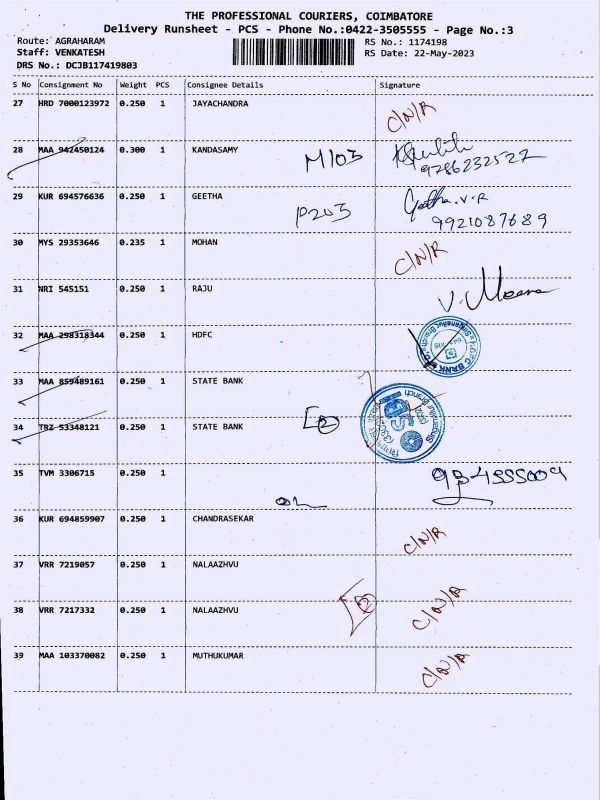 THE PROFESSIONAL COURIERS, COIMBATORE
Delivery Runsheet - PCS - Phone No.:0422-3505555 - Page No.:3
Route: AGRAHARAM RS No.: 1174198
Staff: VENKATESH RS Date: 22-May-2023
DRS No.: DCJB117419803
S No Consignment No Weight PCS Consignee Details Signature
27 HRD 7000123972 0.250 1 JAYACHANDRA C/N/R
28 MAA 942450124 0.300 1 KANDASAMY M103 9786232527
29 KUR 694576636 0.250 1 GEETHA P203 Geetha.V.R
9921087689
30 MYS 29353646 0.235 1 MOHAN C/N/R
31 NRI 545151 0.250 1 RAJU V. Meena
32 MAA 298318344 0.250 1 HDFC
33 MAA 859489161 0.250 1 STATE BANK
34 TRZ 53348121 0.250 1 STATE BANK 2
35 TVM 3306715 0.250 1
36 KUR 694859907 0.250 1 CHANDRASEKAR C/N/R
37 VRR 7219057 0.250 1 NALAAZHVU
38 VRR 7217332 0.250 1 NALAAZHVU 2 C/N/R
39 MAA 103370082 0.250 1 MUTHUKUMAR C/N/R